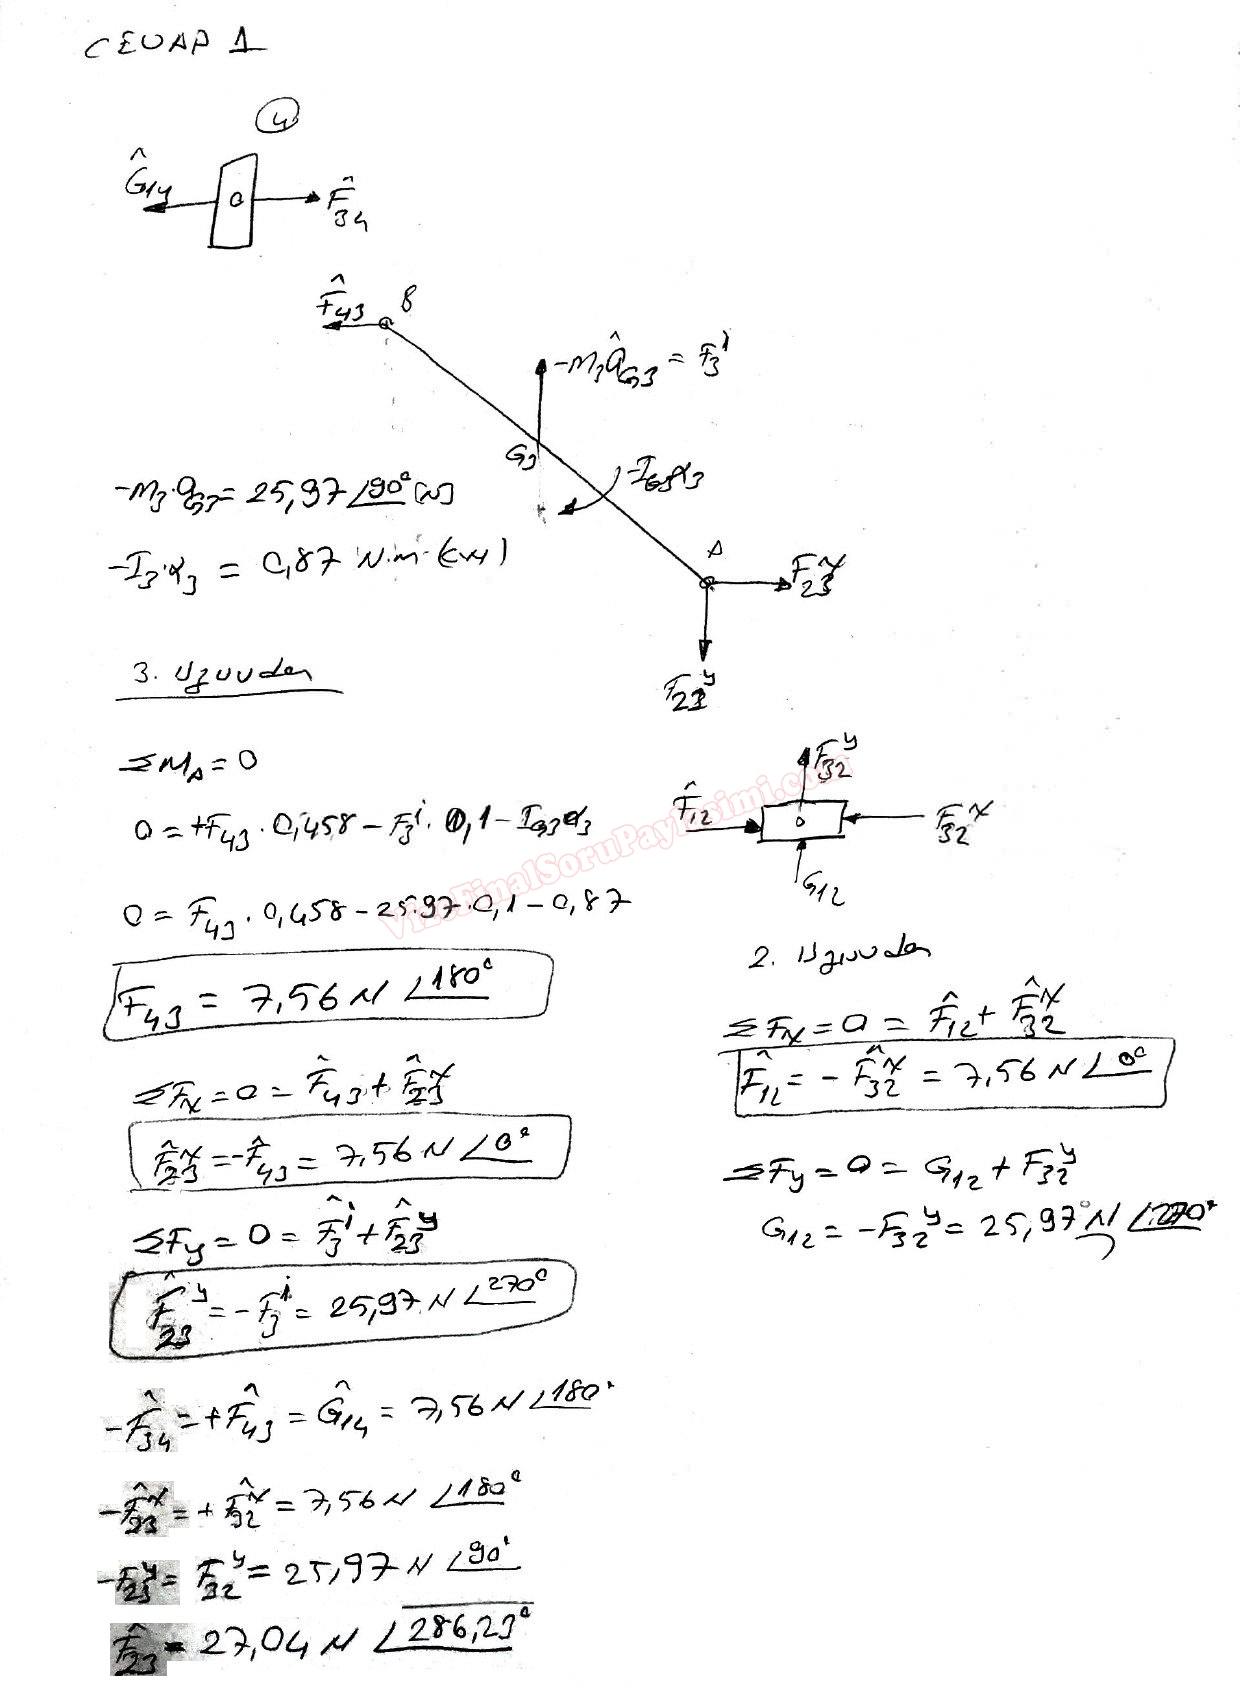 CEVAP 1
4
Ĝ14
F̂34
F̂43
B
-m3 âG3 = F3^i
G3
-IG3α3
-m3.aG3 = 25,97 ∠90° [N]
-I3.α3 = 0,87 N.m (cw)
A
F23^x
F23^y
3. uzuvdan
ΣMA = 0
0 = +F43 . 0,458 - F3^i . 0,1 - IG3α3
0 = F43 . 0,458 - 25.97 . 0,1 - 0,87
F43 = 7,56 N ∠180°
ΣFx = 0 = F̂43 + F̂23^x
F̂23^x = -F̂43 = 7,56 N ∠0°
ΣFy = 0 = F̂3^i + F̂23^y
F̂23^y = -F3^i = 25,97 N ∠270°
-F̂34 = +F̂43 = Ĝ14 = 7,56 N ∠180°
-F̂23^x = + F̂32^x = 7,56 N ∠180°
-F23^y = F32^y = 25,97 N ∠90°
F̂23 = 27,04 N ∠286,23°
F32^y
F̂12
F32^x
G12
2. uzuvdan
ΣFx = 0 = F̂12 + F̂32^x
F̂12 = -F̂32^x = 7,56 N ∠0°
ΣFy = 0 = G12 + F32^y
G12 = -F32^y = 25,97 N ∠270°
VizeFinalSoruPaylasimi.com